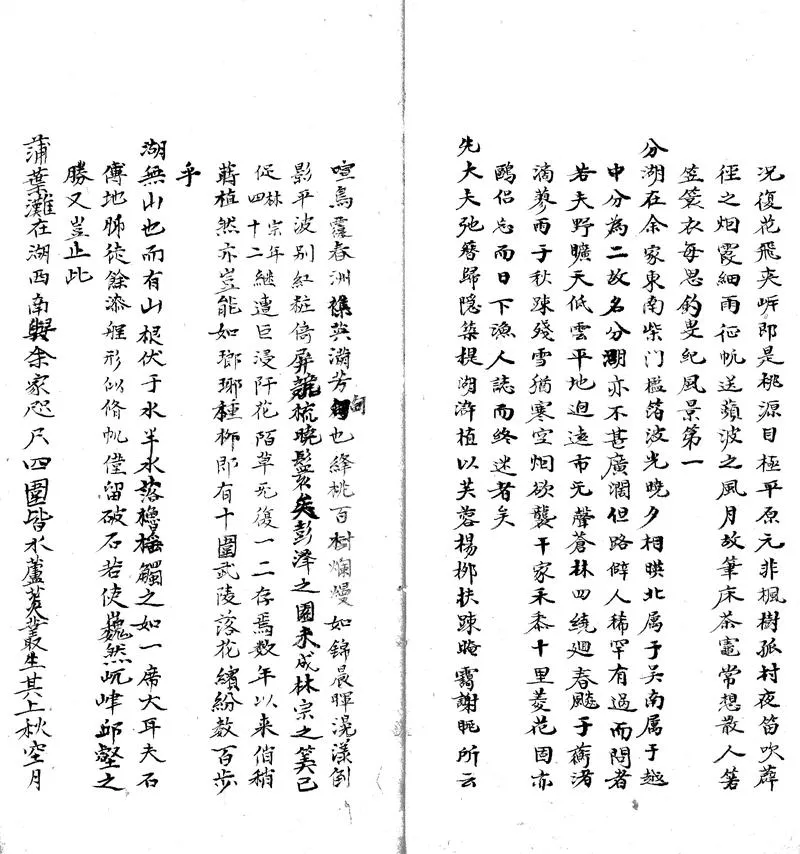 況復花飛夾岍即是桃源目極平原无非楓樹孤村夜笛吹薜
徑之烟霞細雨征帆送蘋波之風月故筆床茶竈常想散人箬
笠簑衣每思釣叟紀風景第一
分湖在余家東南柴门檻箔波光曉夕相暎北属于吴南属于越
中分為二故名分湖亦不甚廣濶但路僻人稀罕有過而問者
若夫野曠天低雲平地迥遠市无聲蒼林四繞廻春颷于蘅渚
滴蓼雨于秋踈殘雪猶寒空烟欲襲千家禾黍十里菱花固亦
鷗侣忘而日下漁人誌而終迷者矣
先大夫弛簪歸隠築堤湖滸植以芙蓉楊栁扶踈晻靄謝眺所云
喧鳥覆春洲襍英滿芳甸也絳桃百樹爛熳如錦晨暉滉漾倒
影平波别紅粧倚屏梳曉鬟矣彭澤之園未成林宗之筭已
促林宗年四十二継遭巨浸阡花陌草死復一二存焉数年以来俏稍
蒔植然亦豈能如瑯琊種栁即有十圍武陵落花繽紛数百步
乎
湖無山也而有山根伏于水半水落櫓摇觸之如一席大耳夫石
傳地肺徒餘漆𦩍形似脩帆僅留破石若使巍然屼嵂邱壑之
勝又豈止此
蒲葉灘在湖西南與余家咫尺四圍皆水蘆荻叢生其上秋空月